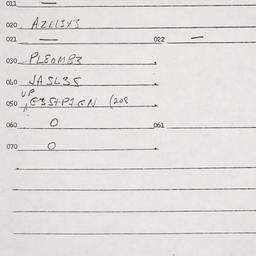 011 —
020 AZ113X3
021 — 022 —
030 PLEOMB3
040 JASL35
UP
050 E3StPIEN (208
060 0 061
070 0